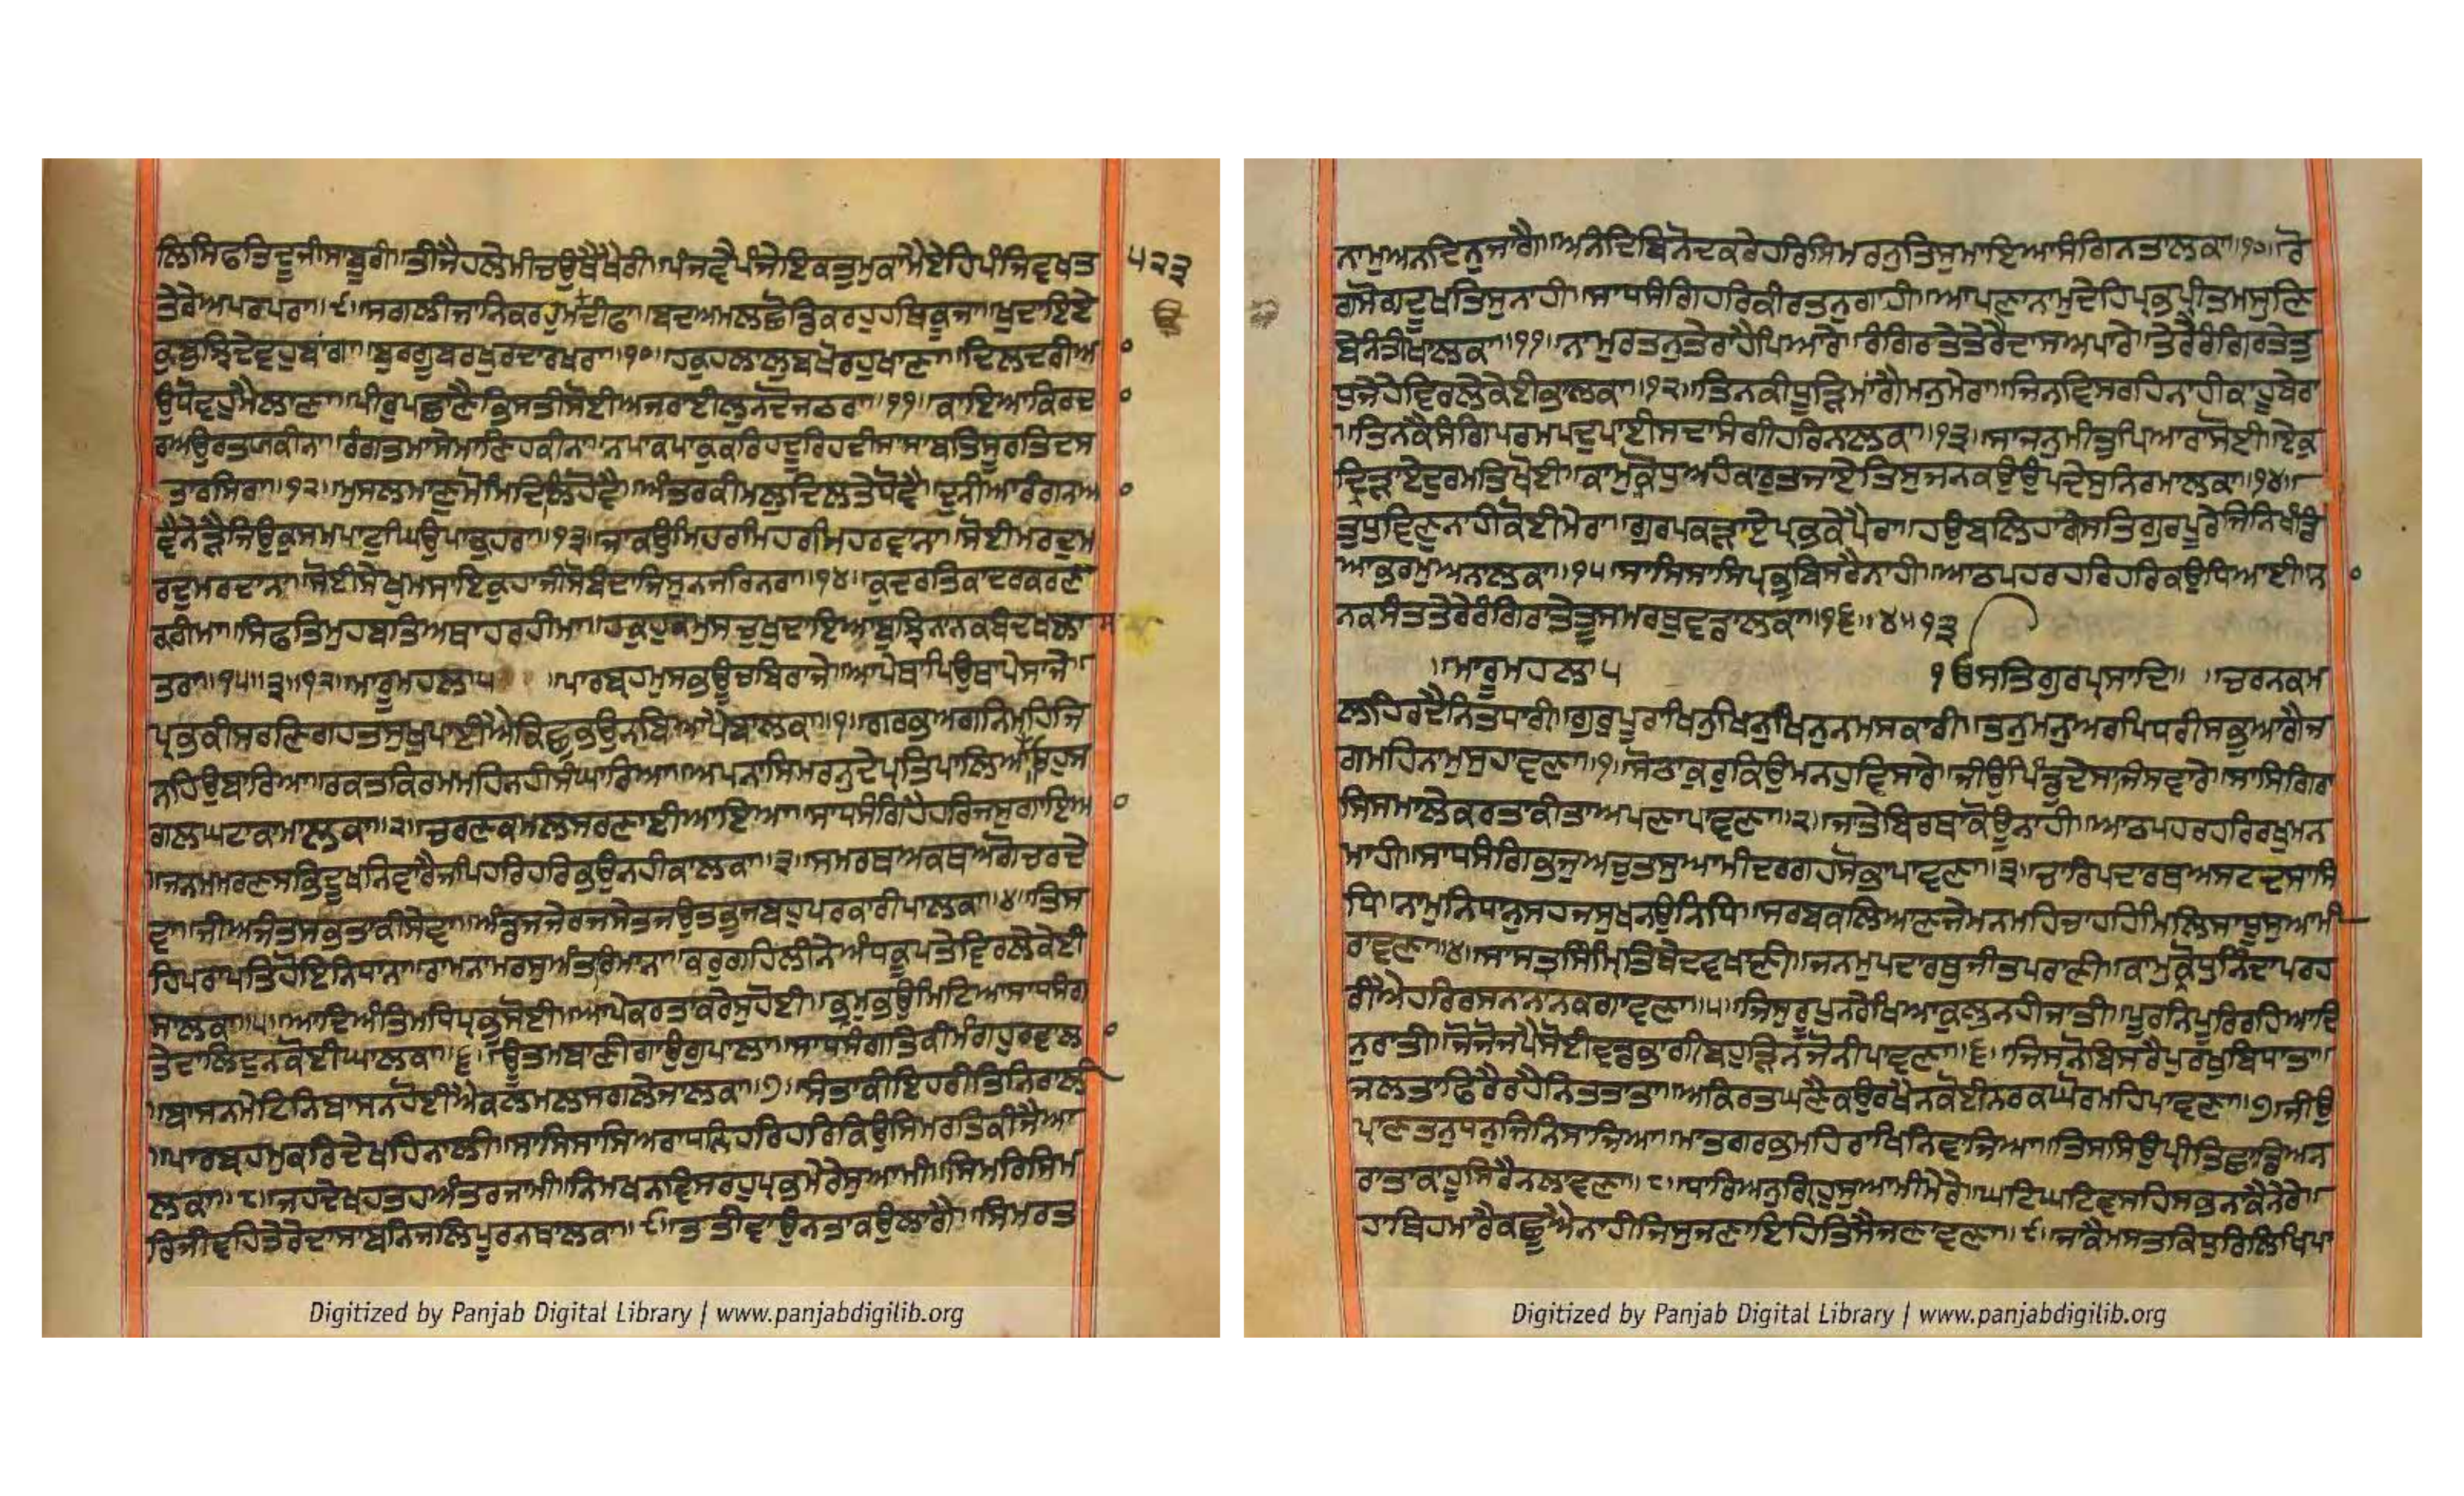 ਲਿਸਿਫਤਿਦੂਜੀਸਾਬੂਰੀ॥ਤੀਜੈਹਲੇਮੀਚਉਥੈਖੈਰੀ॥ਪੰਜਵੈਪੰਜੇਇਕਤੁਮੁਕਾਮੈਏਹਿਪੰਜਿਵਖਤ
ਤੇਰੇਅਪਰਪਰਾ॥੯॥ਸਗਲੀਜਾਨਿਕਰਹੁਮਉਦੀਫਾ॥ਬਦਅਮਲਛੋਡਿਕਰਹੁਹਥਿਕੂਜਾ॥ਖੁਦਾਇਏ
ਕੁਬੁਝਿਦੇਵਹੁਬਾਂਗਾਂ॥ਬੁਰਗੂਬਰਖੁਰਦਾਰਖਰਾ॥੧੦॥ਹਕੁਹਲਾਲੁਬਖੋਰਹੁਖਾਣਾ॥ਦਿਲਦਰੀਆ
ਉਧੋਵਹੁਮੈਲਾਣਾ॥ਪੀਰੁਪਛਾਣੈਭਿਸਤੀਸੋਈਅਜਰਾਈਲੁਨਦੋਜਠਰਾ॥੧੧॥ਕਾਇਆਕਿਰਦਾ
ਰਅਉਰਤਯਕੀਨਾ॥ਰੰਗਤਮਾਸੇਮਾਣਿਹਕੀਨਾ॥ਨਾਪਾਕਪਾਕੁਕਰਿਹਦੂਰਿਹਦੀਸਾਸਾਬਤਿਸੂਰਤਿਦਸ
ਤਾਰਸਿਰਾ॥੧੨॥ਮੁਸਲਮਾਣੁਮੋਮਿਦਿਲਿਹੋਵੈ॥ਅੰਤਰਕੀਮਲੁਦਿਲਤੇਧੋਵੈ॥ਦੁਨੀਆਰੰਗਨਆ
ਵੈਨੇੜੈਜਿਉਕੁਸਮਪਾਟੁਘਿਉਪਾਕੁਹਰਾ॥੧੩॥ਜਾਕਉਮਿਹਰਮਿਹਰਮਿਹਰਵਾਨਾ॥ਸੋਈਮਰਦੁਮ
ਰਦੁਮਰਦਾਨਾ॥ਸੋਈਸੇਖੁਮਸਾਇਕੁਹਾਜੀਸੋਬੰਦਾਜਿਸੁਨਜਰਿਨਰਾ॥੧੪॥ਕੁਦਰਤਿਕਾਦਰਕਰਣ
ਕਰੀਮਾ॥ਸਿਫਤਿਮੁਹਬਤਿਅਥਾਹਰਹੀਮਾ॥ਹਕੁਹੁਕਮੁਸਚੁਖੁਦਾਇਆਬੁਝਿਨਾਨਕਬੰਦਿਖਲਾਸ
ਤਰਾ॥੧੫॥੩॥੧੨॥ਮਾਰੂਮਹਲਾ੫ ॥ਪਾਰਬ੍ਰਹਮੁਸਭਊਚਬਿਰਾਜੇ॥ਆਪੇਥਾਪਿਉਥਾਪੇਸਾਜੇ॥
ਪ੍ਰਭਕੀਸਰਣਿਗਹਤਸੁਖੁਪਾਈਐਕਿਛੁਭਉਨਬਿਆਪੈਬਾਲਕਾ॥੧॥ਗਰਭਅਗਨਿਮਹਿਜਿ
ਨਹਿਉਬਾਰਿਆ॥ਰਕਤਕਿਰਮਮਹਿਨਹੀਸੰਘਾਰਿਆ॥ਅਪਨਾਸਿਮਰਨੁਦੇਪ੍ਰਤਿਪਾਲਿਆਓਹੁਸ
ਗਲਘਟਾਕਾਮਾਲਕਾ॥੨॥ਚਰਣਕਮਲਸਰਣਾਈਆਇਆ॥ਸਾਧਸੰਗਿਹੈਹਰਿਜਸੁਗਾਇਆ
॥ਜਨਮਮਰਣਸਭਿਦੂਖਨਿਵਾਰੈਜਪਿਹਰਿਹਰਿਭਉਨਹੀਕਾਲਕਾ॥੩॥ਸਮਰਥਅਕਥਅਗੋਚਰਦੇ
ਵਾ॥ਜੀਅਜੰਤਸਭਿਤਾਕੀਸੇਵਾ॥ਅੰਡਜਜੇਰਜਸੇਤਜਉਤਭੁਜਬਹੁਪਰਕਾਰੀਪਾਲਕਾ॥੪॥ਤਿਸ
ਹਿਪਰਾਪਤਿਹੋਇਨਿਧਾਨਾ॥ਰਾਮਨਾਮਰਸੁਅੰਤਰਿਮਾਨਾ॥ਕਰੁਗਹਿਲੀਨੇਅੰਧਕੂਪਤੇਵਿਰਲੇਕੇਈ
ਸਾਲਕਾ॥੫॥ਆਦਿਅੰਤਿਮਧਿਪ੍ਰਭੁਸੋਈ॥ਆਪੇਕਰਤਾਕਰੇਸੁਹੋਈ॥ਭ੍ਰਮੁਭਉਮਿਟਿਆਸਾਧਸੰਗ
ਤੇਦਾਲਿਦਨਕੋਈਘਾਲਕਾ॥੬॥ਊਤਮਬਾਣੀਗਾਉਗੋੁਪਾਲਾ॥ਸਾਧਸੰਗਤਿਕੀਮੰਗਹੁਰਵਾਲਾ
॥ਬਾਸਨਮੇਟਿਨਿਬਾਸਨਹੋਈਐਕਲਮਲਸਗਲੇਜਾਲਕਾ॥੭॥ਸੰਤਾਕੀਇਹਰੀਤਿਨਿਰਾਲੀ
॥ਪਾਰਬ੍ਰਹਮੁਕਰਿਦੇਖਹਿਨਾਲੀ॥ਸਾਸਿਸਾਸਿਅਰਾਧਨਿਹਰਿਹਰਿਕਿਉਸਿਮਰਤਕੀਜੈਆ
ਲਕਾ॥੮॥ਜਹਦੇਖਾਤਹਅੰਤਰਜਾਮੀ॥ਨਿਮਖਨਵਿਸਰਹੁਪ੍ਰਭਮੇਰੇਸੁਆਮੀ॥ਸਿਮਰਿਸਿਮ
ਰਿਜੀਵਹਿਤੇਰੇਦਾਸਾਬਨਿਜਲਿਪੂਰਨਥਾਲਕਾ॥੯॥ਤਤੀਵਾਉਨਤਾਕਉਲਾਗੈ॥ਸਿਮਰਤ
੫੨੩
ਨਾਮੁਅਨਦਿਨੁਜਾਗੈ॥ਅਨਦਬਿਨੋਦਕਰੇਹਰਿਸਿਮਰਨੁਤਿਸੁਮਾਇਆਸੰਗਿਨਤਾਲਕਾ॥੧੦॥ਰੋ
ਗਸੋਗਦੂਖਤਿਸੁਨਾਹੀ॥ਸਾਧਸੰਗਿਹਰਿਕੀਰਤਨੁਗਾਹੀ॥ਆਪਣਾਨਾਮੁਦੇਹਿਪ੍ਰਭਪ੍ਰੀਤਮਸੁਣਿ
ਬੇਨੰਤੀਖਾਲਕਾ॥੧੧॥ਨਾਮੁਰਤਨੁਤੇਰਾਹੈਪਿਆਰੇ॥ਰੰਗਿਰਤੇਤੇਰੈਦਾਸਅਪਾਰੇ॥ਤੇਰੈਰੰਗਿਰਤੇਤੁ
ਧੁਜੇਹੇਵਿਰਲੇਕੇਈਭਾਲਕਾ॥੧੨॥ਤਿਨਕੀਧੂੜਿਮਾਂਗੈਮਨੁਮੇਰਾ॥ਜਿਨਵਿਸਰਹਿਨਾਹੀਕਾਹੂਬੇਰਾ
॥ਤਿਨਕੈਸੰਗਿਪਰਮਪਦੁਪਾਈਸਦਾਸੰਗੀਹਰਿਨਾਲਕਾ॥੧੩॥ਸਾਜਨੁਮੀਤੁਪਿਆਰਾਸੋਈ॥ਏਕੁ
ਦ੍ਰਿੜਾਏਦੁਰਮਤਿਖੋਈ॥ਕਾਮੁਕ੍ਰੋਧੁਅਹੰਕਾਰੁਤਜਾਏਤਿਸੁਜਨਕਉਉਪਦੇਸੁਨਿਰਮਾਲਕਾ॥੧੪॥
ਤੁਧੁਵਿਣੁਨਾਹੀਕੋਈਮੇਰਾ॥ਗੁਰਪਕੜਾਏਪ੍ਰਭਕੇਪੈਰਾ॥ਹਉਬਲਿਹਾਰੀਸਤਿਗੁਰਪੂਰੇਜਿਨਿਖੰਡਿ
ਆਭਰਮੁਅਨਾਲਕਾ॥੧੫॥ਸਾਸਿਸਾਸਿਪ੍ਰਭੁਬਿਸਰੈਨਾਹੀ॥ਆਠਪਹਰਹਰਿਹਰਿਕਉਧਿਆਈ॥ਨਾ
ਨਕਸੰਤਤੇਰੈਰੰਗਿਰਾਤੇਤੂਸਮਰਥੁਵਡਾਲਕਾ॥੧੬॥੪॥੧੩
॥ਮਾਰੂਮਹਲਾ੫ ੴਸਤਿਗੁਰਪ੍ਰਸਾਦਿ॥ ॥ਚਰਨਕਮ
ਲਹਿਰਦੈਨਿਤਧਾਰੀ॥ਗੁਰੁਪੂਰਾਖਿਨੁਖਿਨੁਖਿਨੁਨਮਸਕਾਰੀ॥ਤਨੁਮਨੁਅਰਪਿਧਰੀਸਭੁਆਗੈਜ
ਗਮਹਿਨਾਮੁਸੁਹਾਵਣਾ॥੧॥ਸੋਠਾਕੁਰੁਕਿਉਮਨਹੁਵਿਸਾਰੇ॥ਜੀਉਪਿੰਡੁਦੇਸਾਜਿਸਵਾਰੇ॥ਸਾਸਿਗਰਾ
ਸਿਸਮਾਲੇਕਰਤਾਕੀਤਾਅਪਣਾਪਾਵਣਾ॥੨॥ਜਾਤੇਬਿਰਥਾਕੋਊਨਾਹੀ॥ਆਠਪਹਰਹਰਿਰਖੁਮਨ
ਮਾਹੀ॥ਸਾਧਸੰਗਿਭਜੁਅਚੁਤਸੁਆਮੀਦਰਗਹਸੋਭਾਪਾਵਣਾ॥੩॥ਚਾਰਿਪਦਾਰਥਅਸਟਦਸਾਸਿ
ਧਿ॥ਨਾਮੁਨਿਧਾਨੁਸਹਜਸੁਖਨਉਨਿਧਿ॥ਸਰਬਕਲਿਆਣਜੇਮਨਮਹਿਚਾਹਹਿਮਿਲਿਸਾਧੂਸੁਆਮੀ
ਰਾਵਣਾ॥੪॥ਸਾਸਤਸਿੰਮ੍ਰਿਤਿਬੇਦਵਖਾਣੀ॥ਜਨਮੁਪਦਾਰਥੁਜੀਤਪਰਾਣੀ॥ਕਾਮੁਕ੍ਰੋਧੁਨਿੰਦਾਪਰਹ
ਰੀਐਹਰਿਰਸਨਾਨਾਨਕਗਾਵਣਾ॥੫॥ਜਿਸੁਰੂਪੁਨਰੇਖਿਆਕੁਲੁਨਹੀਜਾਤੀ॥ਪੂਰਨਪੂਰਿਰਹਿਆਦਿ
ਨੁਰਾਤੀ॥ਜੋਜੋਜਪੈਸੋਈਵਡਭਾਗੀਬਹੁੜਿਨਜੋਨੀਪਾਵਣਾ॥੬॥ਜਿਸਨੋਬਿਸਰੈਪੁਰਖੁਬਿਧਾਤਾ॥
ਜਲਤਾਫਿਰੈਰਹੈਨਿਤਤਾਤਾ॥ਅਕਿਰਤਘਣੈਕਉਰਖੈਨਕੋਈਨਰਕਘੋਰਮਹਿਪਾਵਣਾ॥੭॥ਜੀਉ
ਪ੍ਰਾਣਤਨੁਧਨੁਜਿਨਿਸਾਜਿਆ॥ਮਾਤਗਰਭਮਹਿਰਾਖਿਨਿਵਾਜਿਆ॥ਤਿਸਸਿਉਪ੍ਰੀਤਿਛਾਡਿਅਨ
ਰਾਤਾਕਾਹੂਸਿਰੈਨਲਾਵਣਾ॥੮॥ਧਾਰਿਅਨੁਗ੍ਰਹੁਸੁਆਮੀਮੇਰੇ॥ਘਟਿਘਟਿਵਸਹਿਸਭਨਾਕੈਨੇਰੇ॥
ਹਾਥਿਹਮਾਰੈਕਛੂਐਨਾਹੀਜਿਸੁਜਣਾਇਹਿਤਿਸੈਜਣਾਵਣਾ॥੯॥ਜਾਕੈਮਸਤਕਿਧੁਰਿਲਿਖਿਪਾ
Digitized by Panjab Digital Library | www.panjabdigilib.org
Digitized by Panjab Digital Library | www.panjabdigilib.org